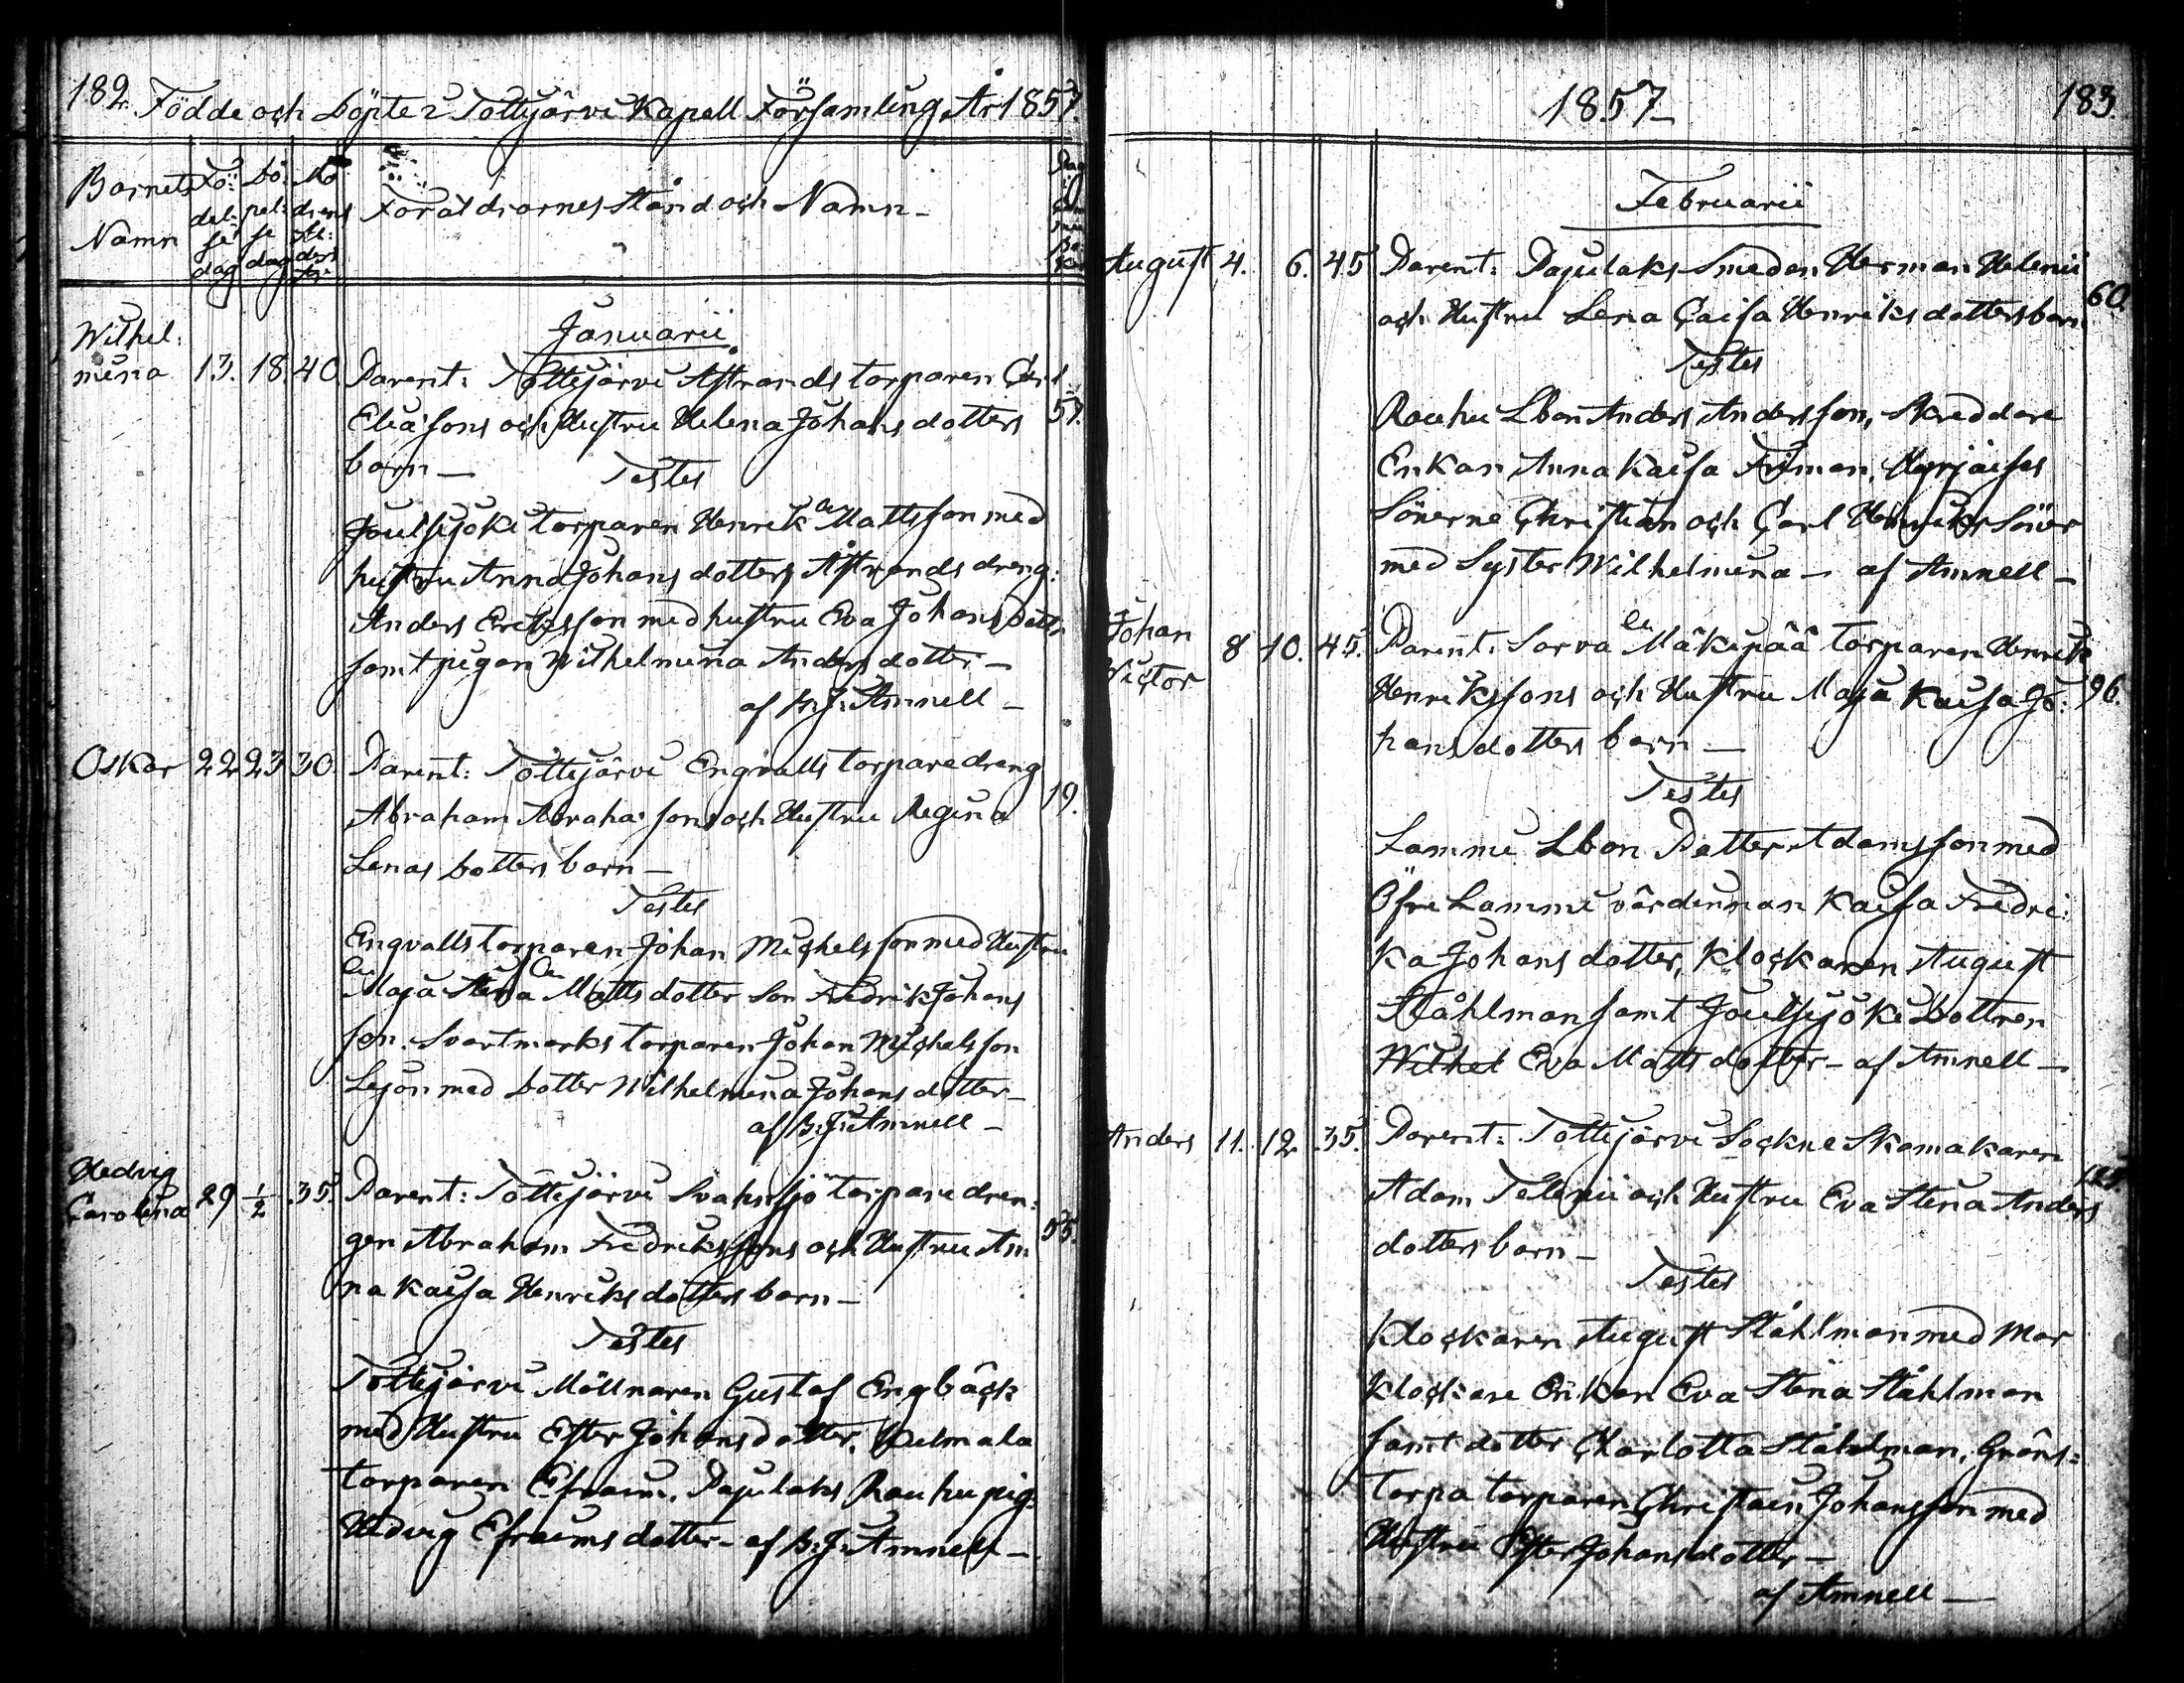 182. Födde och Döpte i Tottijärvi Kapell Församling År 1857.
Barnets Namn
Fö: del: se dag
Dö: pel: se dag
Mo drens Ål: ders År
Föräldrarnes stånd och Namn -
Januarii
Wilhel:
mina 13. 18. 40 Parent: Tottijärvi Åstrands torparen Carl
Eliasons och Hustru Helena Johans dotters 57.
barn -
Testes
Joutsijoki torparen Henrik Mattsson med
hustru Anna Johans dotter, Åstrands dreng:
Anders Ericksson med hustru Eva Johans dotter
samt pigan Wilhelmina Anders dotter -
af B. J. Amnell -
Oskar 22 23 30 Parent: Tottijärvi Engvalls torpare dreng
Abraham Abraha: sons och Hustru Regina 19.
Lenas Dotters barn -
Testes
Engvalls torparen Johan Michels son med Hustru
Maja Stina Matts dotter Son Fredrik Johans
son. Svartmarks torparen Johan Michels son
Lejon med Dotter Wilhelmina Johans dotter -
af B. J. Amnell -
Hedvig
Carolina 29 1/2 35. Parent: Tottijärvi Svahnsjö torpare dren:
gen Abraham Fredrikssons och Hustru An 55.
na Kaisa Henriks dotters barn -
Testes
Tottijärvi Möllnaren Gustaf Engbäck
med Hustru Ester Johans dotter,
torparen Efraim, Pajulaks Rauhu pig:
Hedvig Efraims dotter - af B. J. Amnell -
1857 - 183.
Februarii
August 4. 6. 45 Parent: Pajulaks Smeden Herman Helenii 60.
och Hustru Lena Caisa Henriks dotters barn
Testes
Rauhu Lbon Anders Andersson, Skreddare
Enkan Anna Kaisa Friman, Hyrjäises
Sönerne Christian och Carl Henriks Söner
med Syster Wilhelmina - af Amnell -
Johan
Victor 8 10. 45. Parent: Sorva Mäkipää torparen Henrik
Henrikssons och Hustru Maja Kaisa Jo: 96.
hans dotters barn -
Testes
Lammi Lbon Petter Adamsson med
Öfre Lammi värdinnan Kaisa Fredri:
ka Johans dotter, Klockaren August
Ståhlman samt Joutsijoki Dottren
Wilhel Eva Matts dotter - af Amnell -
Anders 11. 12 35. Parent: Tottijärvi Sockne Skomakaren
Adam Telenii och Hustru Eva Stina Anders
dotters barn -
Testes
Klockaren August Ståhlman med Mor
Klockare Enkan Eva Stina Ståhlman
samt dotter Charlotta Ståhlman, Gräns=
torpa torparen Christian Johansson med
Hustru Ester Johans dotter -
af Amnell -